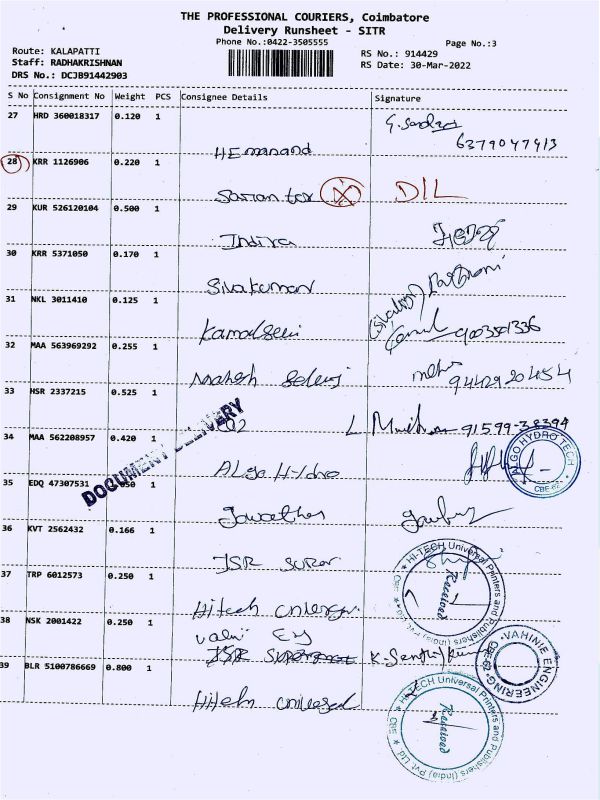 THE PROFESSIONAL COURIERS, Coimbatore
Delivery Runsheet - SITR
Phone No.:0422-3505555
Page No.:3
Route: KALAPATTI
Staff: RADHAKRISHNAN
DRS No.: DCJB91442903
RS No.: 914429
RS Date: 30-Mar-2022
S No Consignment No Weight PCS Consignee Details Signature
27 HRD 360018317 0.120 1
Hemanand 6379047413
28 KRR 1126906 0.220 1
X DIL
29 KUR 526120104 0.500 1
Indira
30 KRR 5371050 0.170 1
Sivakumar
31 NKL 3011410 0.125 1
32 MAA 563969292 0.255 1
Mahesh
33 HSR 2337215 0.525 1
DOCUMENT DELIVERY
91599-38394
34 MAA 562208957 0.420 1
ALgo Hydro
ALGO HYDRO TECH CBE-62
35 EDQ 47307531 1
36 KVT 2562432 0.166 1
JSR
37 TRP 6012573 0.250 1
Hitech
HI-TECH Universal Printers and Publishers (India) Pvt. Ltd. CBE
Received
38 NSK 2001422 0.250 1
VAHINIE ENGINEERING CBE-62
39 BLR 5100786669 0.800 1
Hitech
HI-TECH Universal Printers and Publishers (India) Pvt. Ltd. CBE
Received